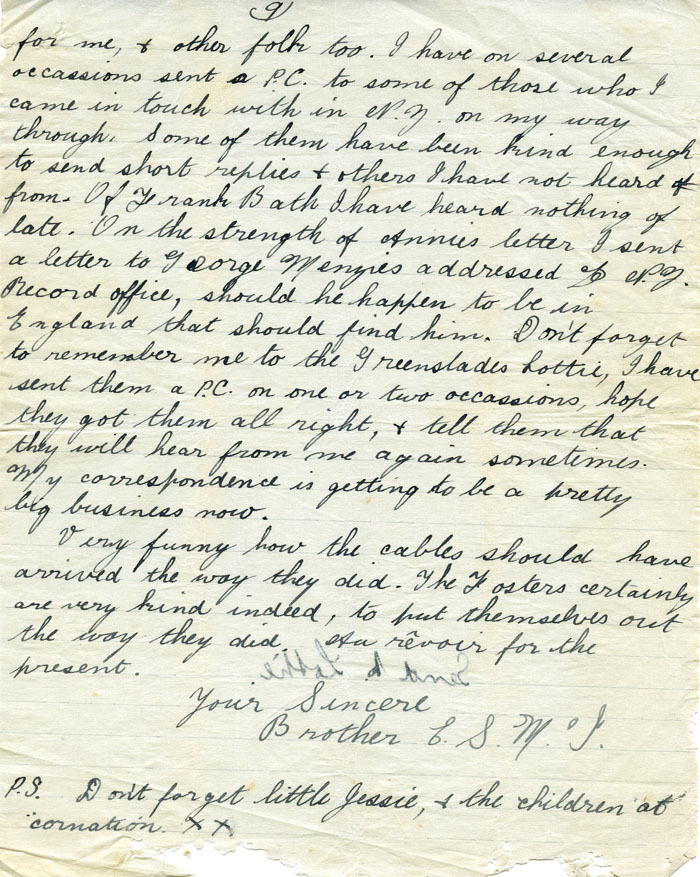 9)
for me, & other folk too. I have on several
occassions sent a P.C. to some of those who I
came in touch with in N.Z. on my way
through. Some of them have been kind enough
to send short replies & others I have not heard
from. Of Frank Bath I have heard nothing of
late. On the strength of Annies letter I sent
a letter to George Menzies addressed to N.Z.
Record office, should he happen to be in
England that should find him. Don't forget
to remember me to the Greenslades Lottie, I have
sent them a P.C. on one or two occassions, hope
they got them all right, & tell them that
they will hear from me again sometimes.
My correspondence is getting to be a pretty
big business now.
Very funny how the cables should have
arrived the way they did. The Fosters certainly
are very kind indeed, to put themselves out
the way they did. Au rêvoir for the
present.
Your Sincere
Brother E. S. M.
P.S. Don't forget little Jessie, & the children at
cornation. XX.